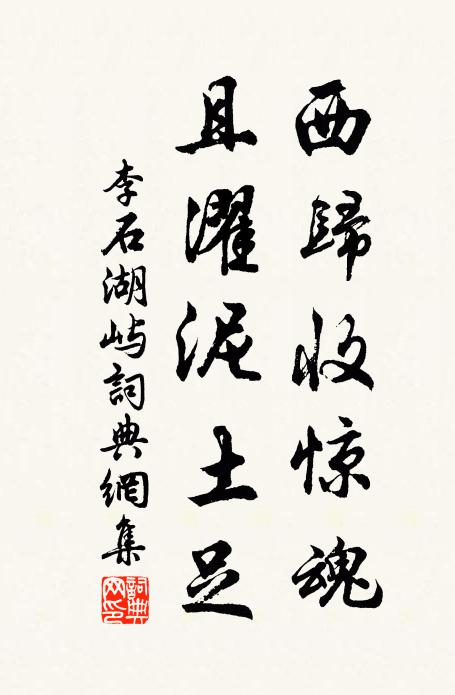 西歸收惊魂
且濯泥土足
李石湖屿詞典網集
詞典網印